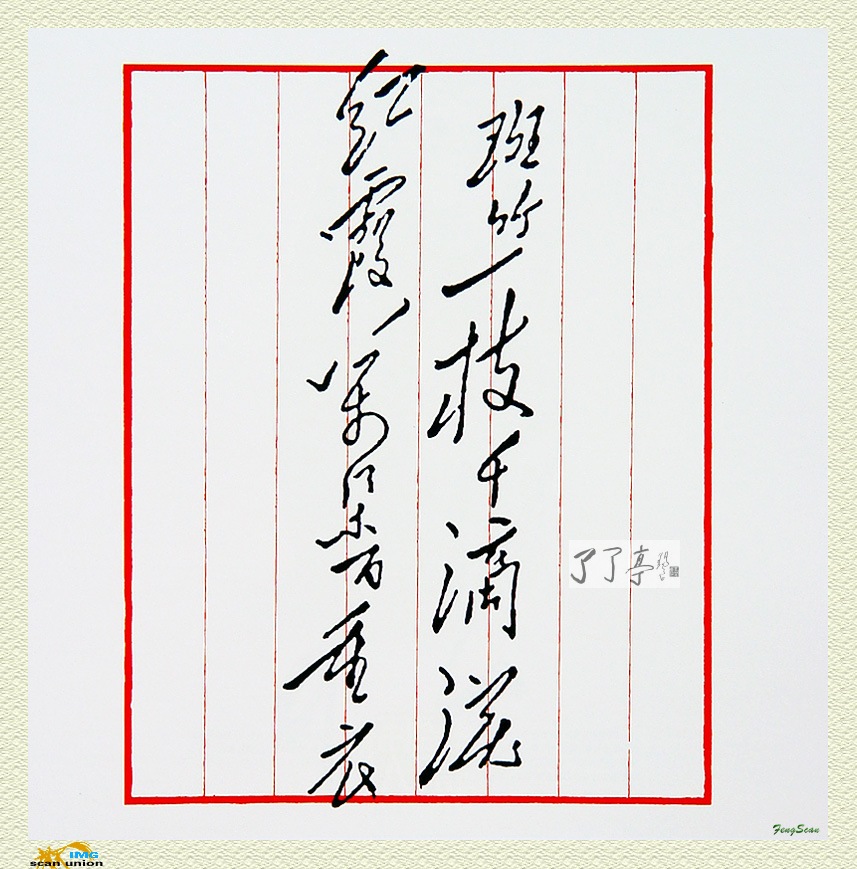 斑竹一枝千滴淚
紅霞萬朵百重衣
了了亭
FengScan
IMG
scan union